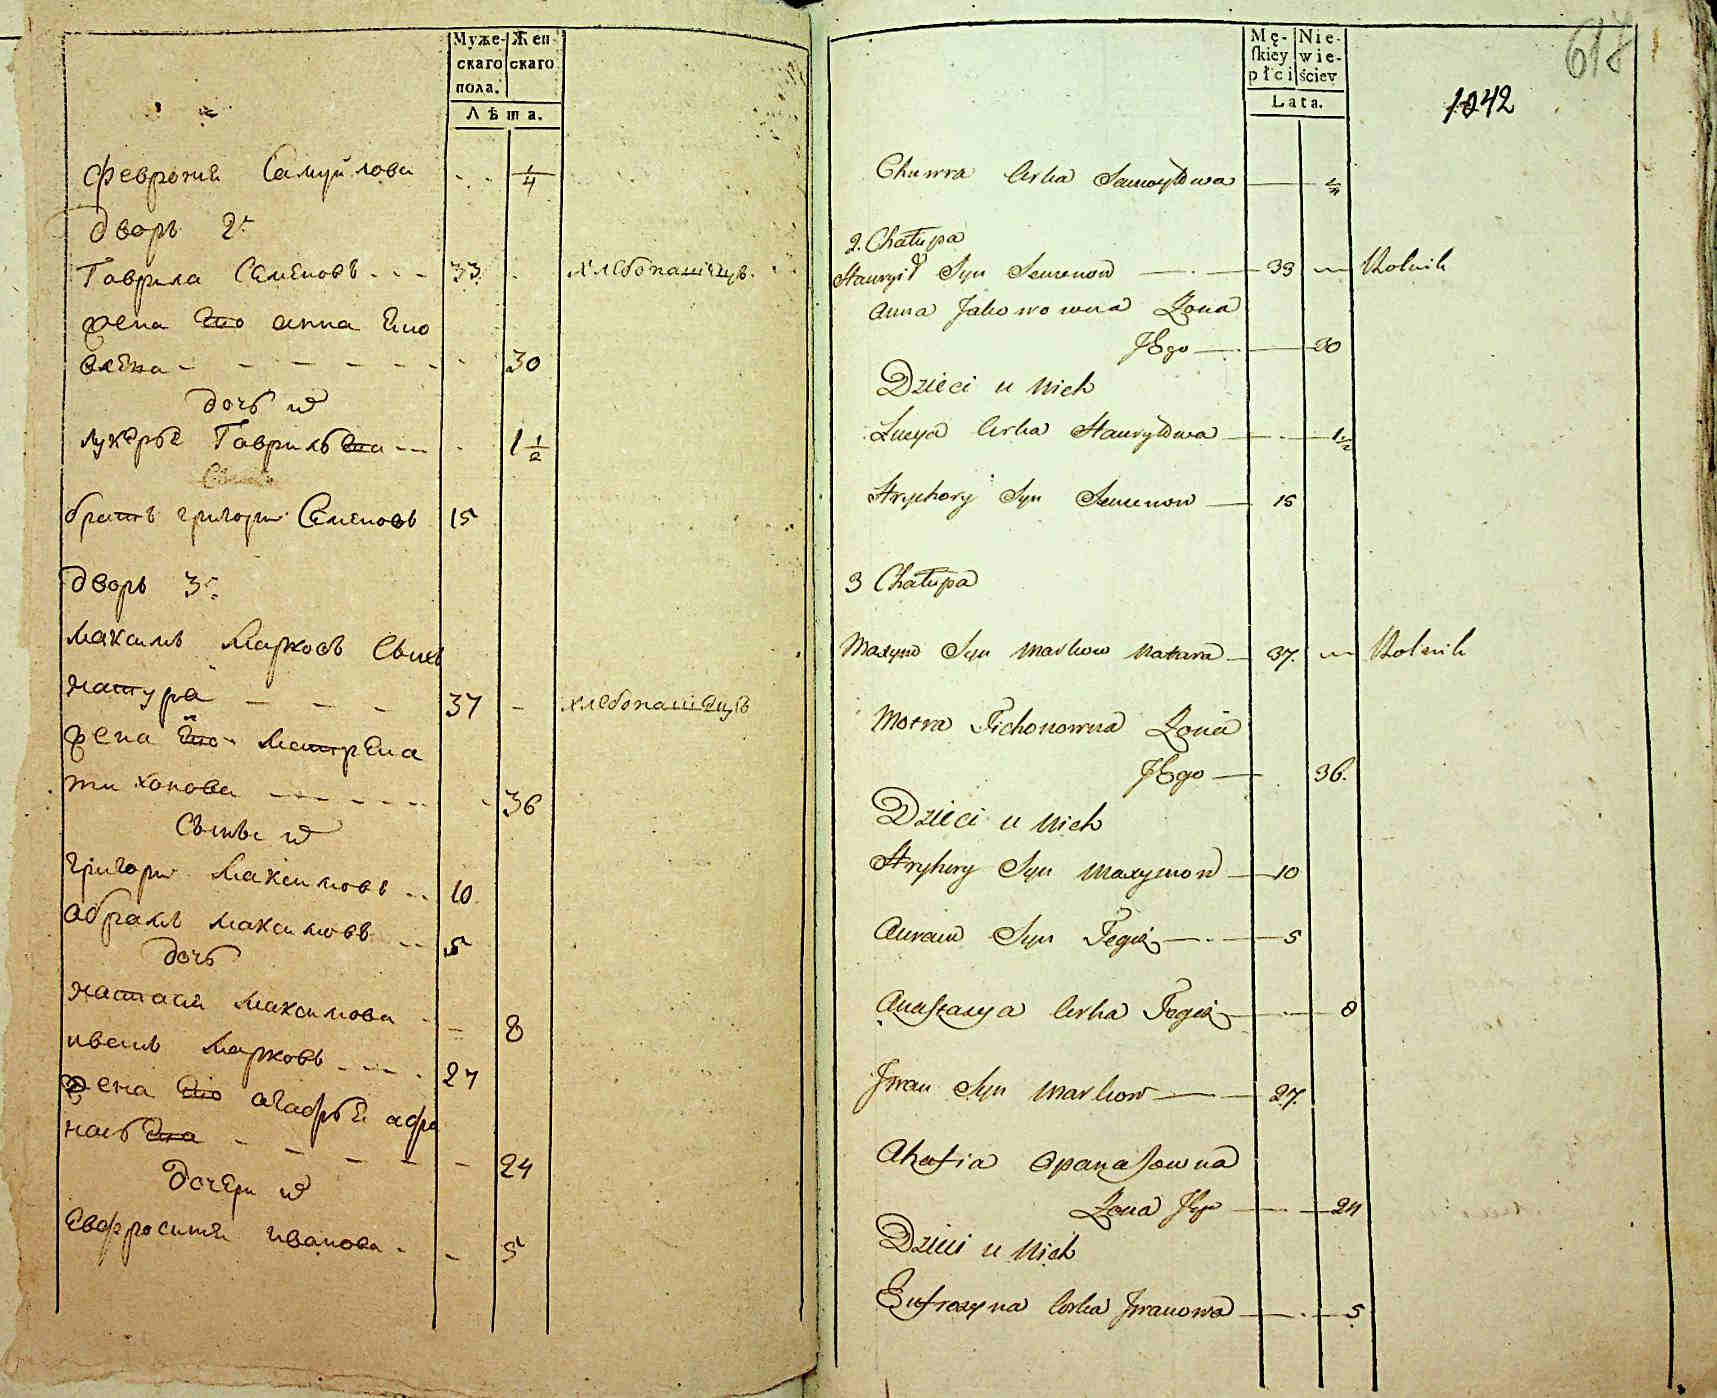 Муже-
скаго
пола.
Жен-
скаго
Лѣта.
Феврония Самуйлова - - 1/4
Дворъ 2й
Гаврила Семеновъ - - - 33. - хлебопашецъ.
жена его анна
30
дочь их
лукерье Гаврильева - - - 1 1/2
братъ григори Семеновъ 15
Дворъ 3й
Максимъ Марковъ
натура - - - 37 - хлебопашецъ
жена его Матрена
тихонова - - - - - - 36
Сыны их
григори Максимовъ - - 10
абрамъ максимовъ - - 5
дочь
настасия Максимова - - 8
иванъ Марковъ - - - - 27
жена его агафья афа
насьева - - - - - 24
дочери их
Евфросиния иванова - - 5
Mę-
skiey
płci
Nie-
wie-
ściey
Lata.
618
1042
Chuwra Corka Samoyłowa — — 1/4
2. Chałupa
Hawryił Syn Semenow — . — 33 — Rolnik
Anna Jakowowna Żona
JEgo — . — 30
Dzieci u Nich
Łucya Corka Hawryłowa — . — 1 1/2
Hryhory Syn Semenow — 15
3 Chałupa
Maxym Syn Markow Natura — 37. — Rolnik
Motra Tichonowna Żona
JEgo — 36.
Dzieci u Nich
Hryhory Syn Maxymow — 10
Auram Syn Tegoż — . — 5
Anastazya Corka Tegoż — . — 8
Jwan Syn Markow — — 27.
Ahafia Opanasowna
Żona JEgo — . — 24
Dzieci u Nich
Eufrozyna Corka Jwanowa — . — 5